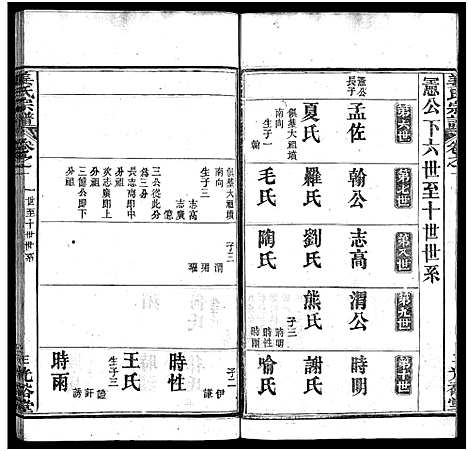 姜氏宗譜
卷之一
光裕堂
憲公下六世至十世世系
第六世
憲公長子
孟佐
夏氏
俱葬大祖墳南向
生子一
翰
第七世
翰公
羅氏
毛氏
俱葬大祖墳南向
生子三
志高
志廣
億
三公從此分為三分
長志高即上分祖
次志廣即中分祖
三億公即下分祖
第八世
志高
劉氏
陶氏
子三
渭
瓚
第九世
渭公
熊氏
子三
時明
時性
時雨
第十世
時明
謝氏
喻氏
子二
伊
謙
時性
王氏
生子三
證
訐
謗
時雨
姜氏宗譜
卷之一
一世至十世世系
光裕堂